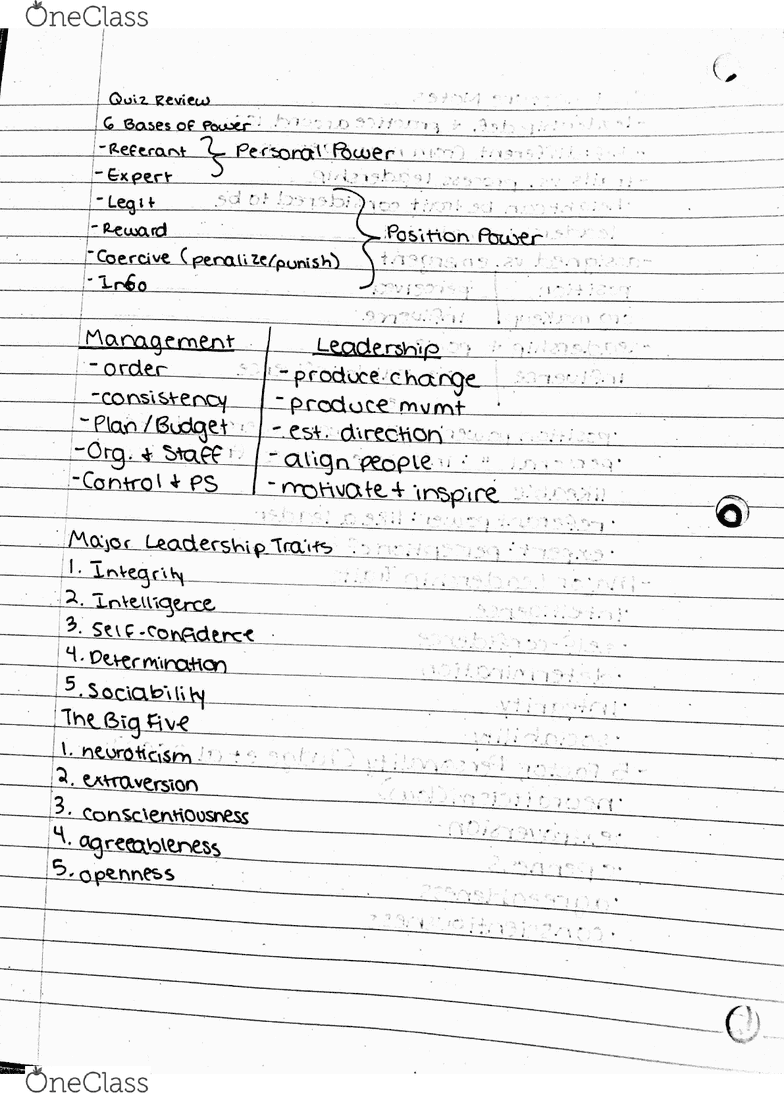 OneClass
Quiz Review
6 Bases of Power
-Referant } Personal Power
-Expert
-Legit
-Reward } Position Power
-Coercive (penalize/punish)
-Info
Management | Leadership
-order | -produce change
-consistency | -produce mvmt
-Plan/Budget | -est. direction
-Org. + Staff | -align people
-Control + PS | -motivate + inspire
Major Leadership Traits
1. Integrity
2. Intelligence
3. Self-confidence
4. Determination
5. Sociability
The Big Five
1. neuroticism
2. extraversion
3. conscientiousness
4. agreeableness
5. openness
OneClass